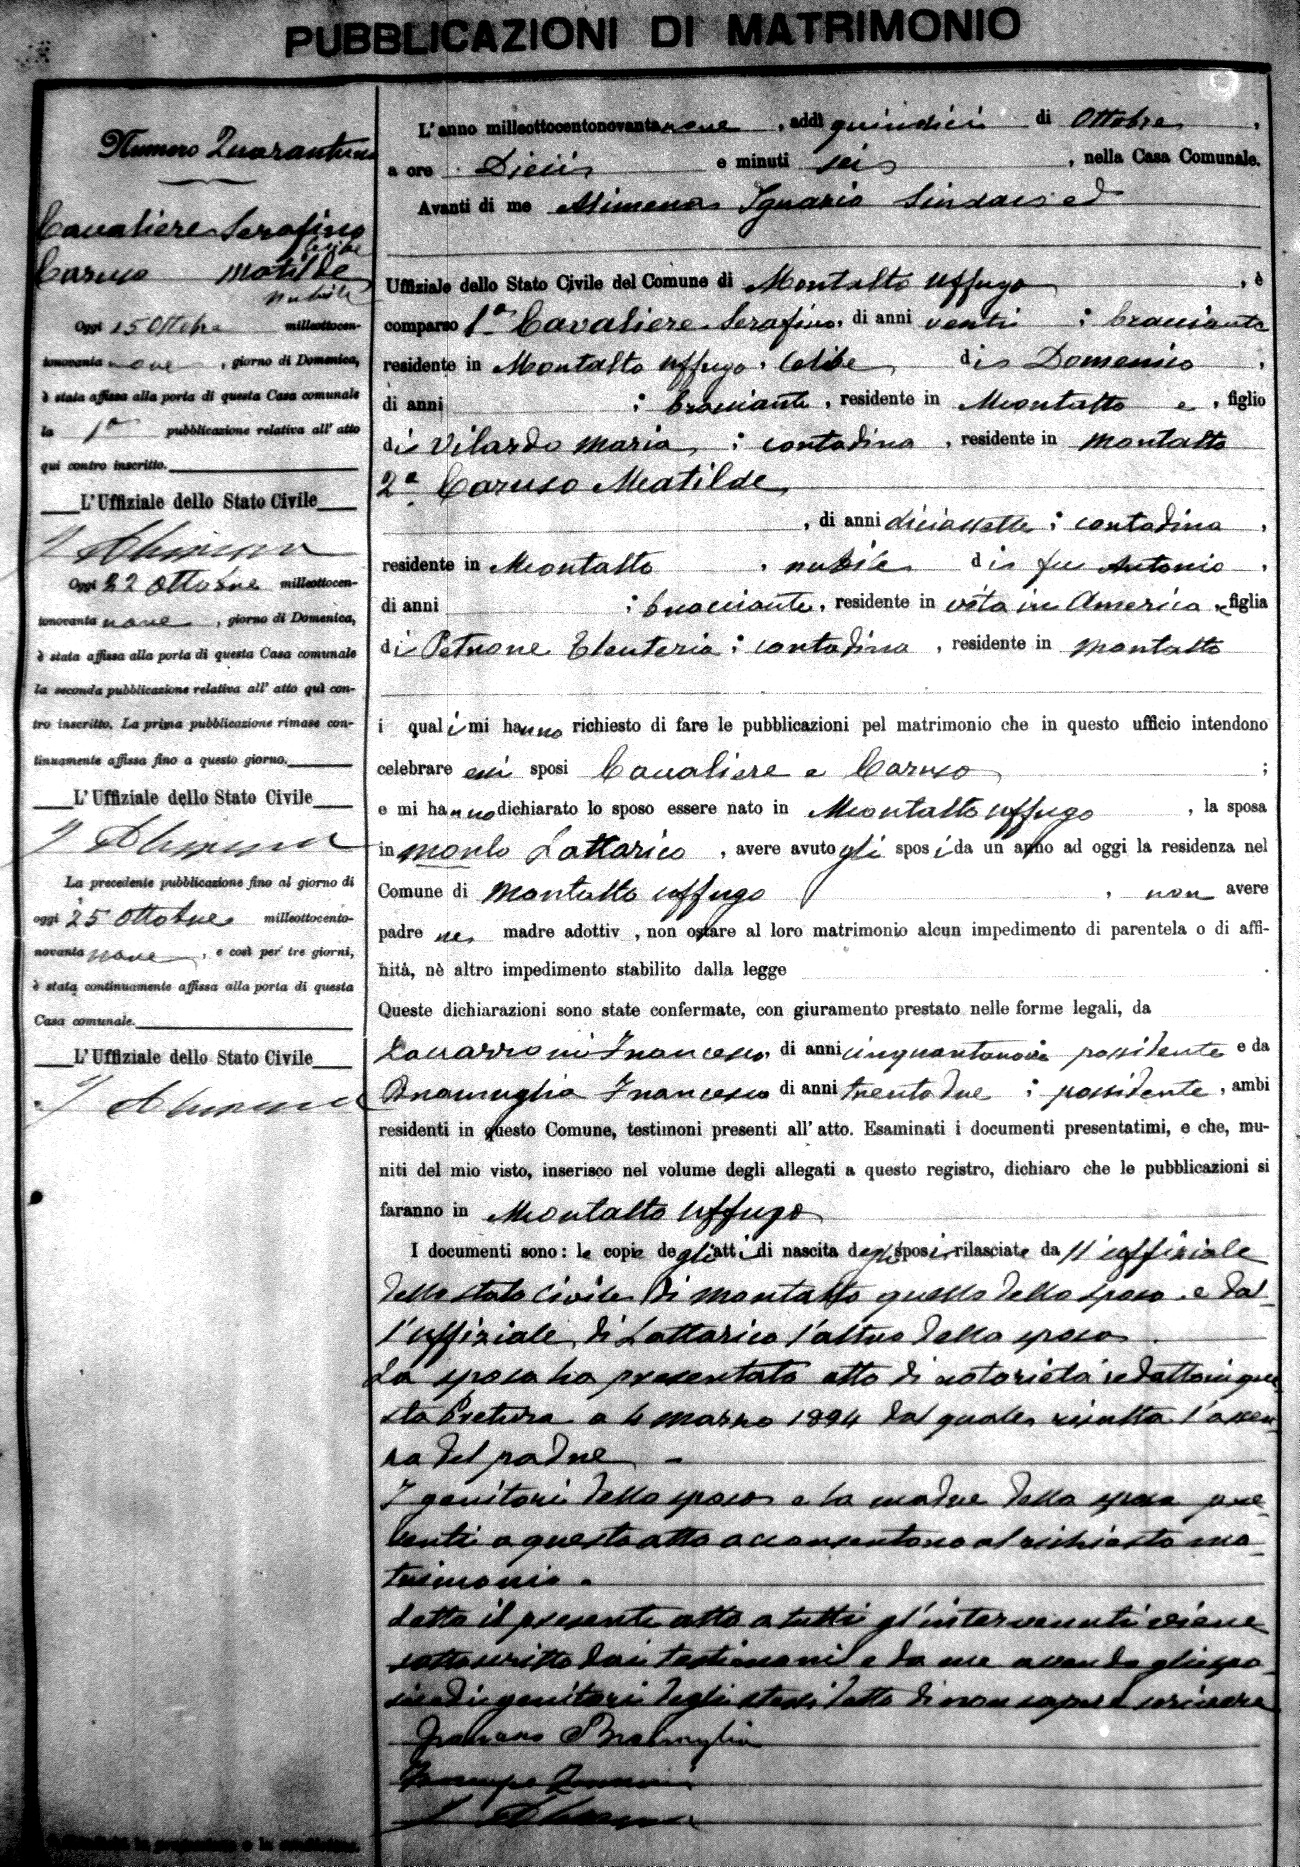 PUBBLICAZIONI DI MATRIMONIO
Numero
Cavaliere Serafino
celibe
Caruso Matilde
nubile
Oggi 15 Ottobre milleottocen-
tonovanta nove, giorno di Domenica,
è stata affissa alla porta di questa Casa comunale
la 1ª pubblicazione relativa all' atto
qui contro inscritto.
L'Uffiziale dello Stato Civile
Oggi 22 Ottobre milleottocen-
tonovanta nove, giorno di Domenica,
è stata affissa alla porta di questa Casa comunale
la seconda pubblicazione relativa all' atto quì con-
tro inscritto. La prima pubblicazione rimase con-
tinuamente affissa fino a questo giorno.
L'Uffiziale dello Stato Civile
La precedente pubblicazione fino al giorno di
oggi 25 Ottobre milleottocento-
novanta nove, e così per tre giorni,
è stata continuamente affissa alla porta di questa
Casa comunale.
L'Uffiziale dello Stato Civile
L'anno milleottocentonovanta nove, addì quindici di Ottobre,
a ore Dieci e minuti sei, nella Casa Comunale.
Avanti di me Alimena Ignazio Sindaco ed
Uffiziale dello Stato Civile del Comune di Montalto Uffugo, è
comparso 1º Cavaliere Serafino, di anni venti; bracciante
residente in Montalto Uffugo, celibe di Domenico,
di anni ; bracciante, residente in Montalto e, figlio
di Vilardo Maria; contadina, residente in Montalto
2ª Caruso Matilde
, di anni diciassette; contadina,
residente in Montalto, nubile di fu Antonio,
di anni ; bracciante, residente in vita in America e figlia
di Petrone Eleuteria; contadina, residente in Montalto
i quali mi hanno richiesto di fare le pubblicazioni pel matrimonio che in questo ufficio intendono
celebrare essi sposi Cavaliere e Caruso;
e mi hanno dichiarato lo sposo essere nato in Montalto Uffugo, la sposa
in Lattarico, avere avuto gli sposi da un anno ad oggi la residenza nel
Comune di Montalto Uffugo, non avere
padre nè madre adottiv , non ostare al loro matrimonio alcun impedimento di parentela o di affi-
nità, nè altro impedimento stabilito dalla legge .
Queste dichiarazioni sono state confermate, con giuramento prestato nelle forme legali, da
Francesco, di anni possidente e da
Bramuglia Francesco di anni trentadue; possidente, ambi
residenti in questo Comune, testimoni presenti all' atto. Esaminati i documenti presentatimi, e che, mu-
niti del mio visto, inserisco nel volume degli allegati a questo registro, dichiaro che le pubblicazioni si
faranno in Montalto Uffugo
I documenti sono: le copie degli atti di nascita degli sposi rilasciate da ll'uffiziale
dello stato civile di Montalto quello dello sposo e dal-
l'uffiziale di Lattarico l'altro della sposa.
La sposa ha presentato atto di notorietà redatto in que-
sta Pretura a 4 marzo 1894 dal quale risulta l'assen-
za del padre.
I genitori dello sposo e la madre della sposa pre-
senti a questo atto acconsentono al richiesto ma-
trimonio.
Letto il presente atto a tutti gl'intervenuti viene
sottoscritto dai testimoni e da me avendo gli spo-
si ed i genitori degli stessi detto di non sapere scrivere
Bramuglia